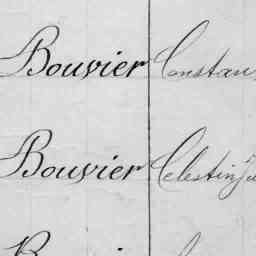 Bouvier Constan
Bouvier Celestin Ju